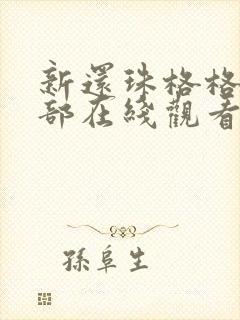 新還珠格格
部在綫觀看
孫阜生